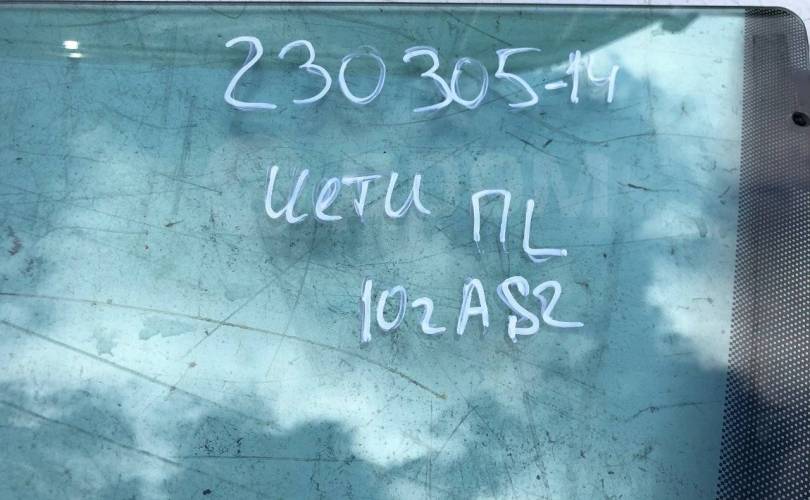 230 305-14
Исти ПL
10г AS2